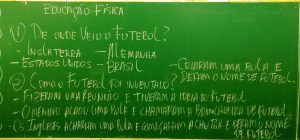 EDUCAÇÃO FÍSICA
① DE ONDE VEIO O FUTEBOL?
- INGLATERRA - ALEMANHA
- ESTADOS UNIDOS - BRASIL - CRIARAM UMA BOLA E DERAM O NOME DE FUTEBOL.
② COMO O FUTEBOL FOI INVENTADO?
- FIZERAM UMA REUNIÃO E TIVERAM A IDEIA DO FUTEBOL
- O MENINO ACHOU UMA BOLA E CHAMARAM A BRINCADEIRA DE FUTEBOL.
- OS INGLESES ACHARAM UMA BOLA E COMEÇARAM A CHUTAR E DERAM O NOME
DE FUTEBOL